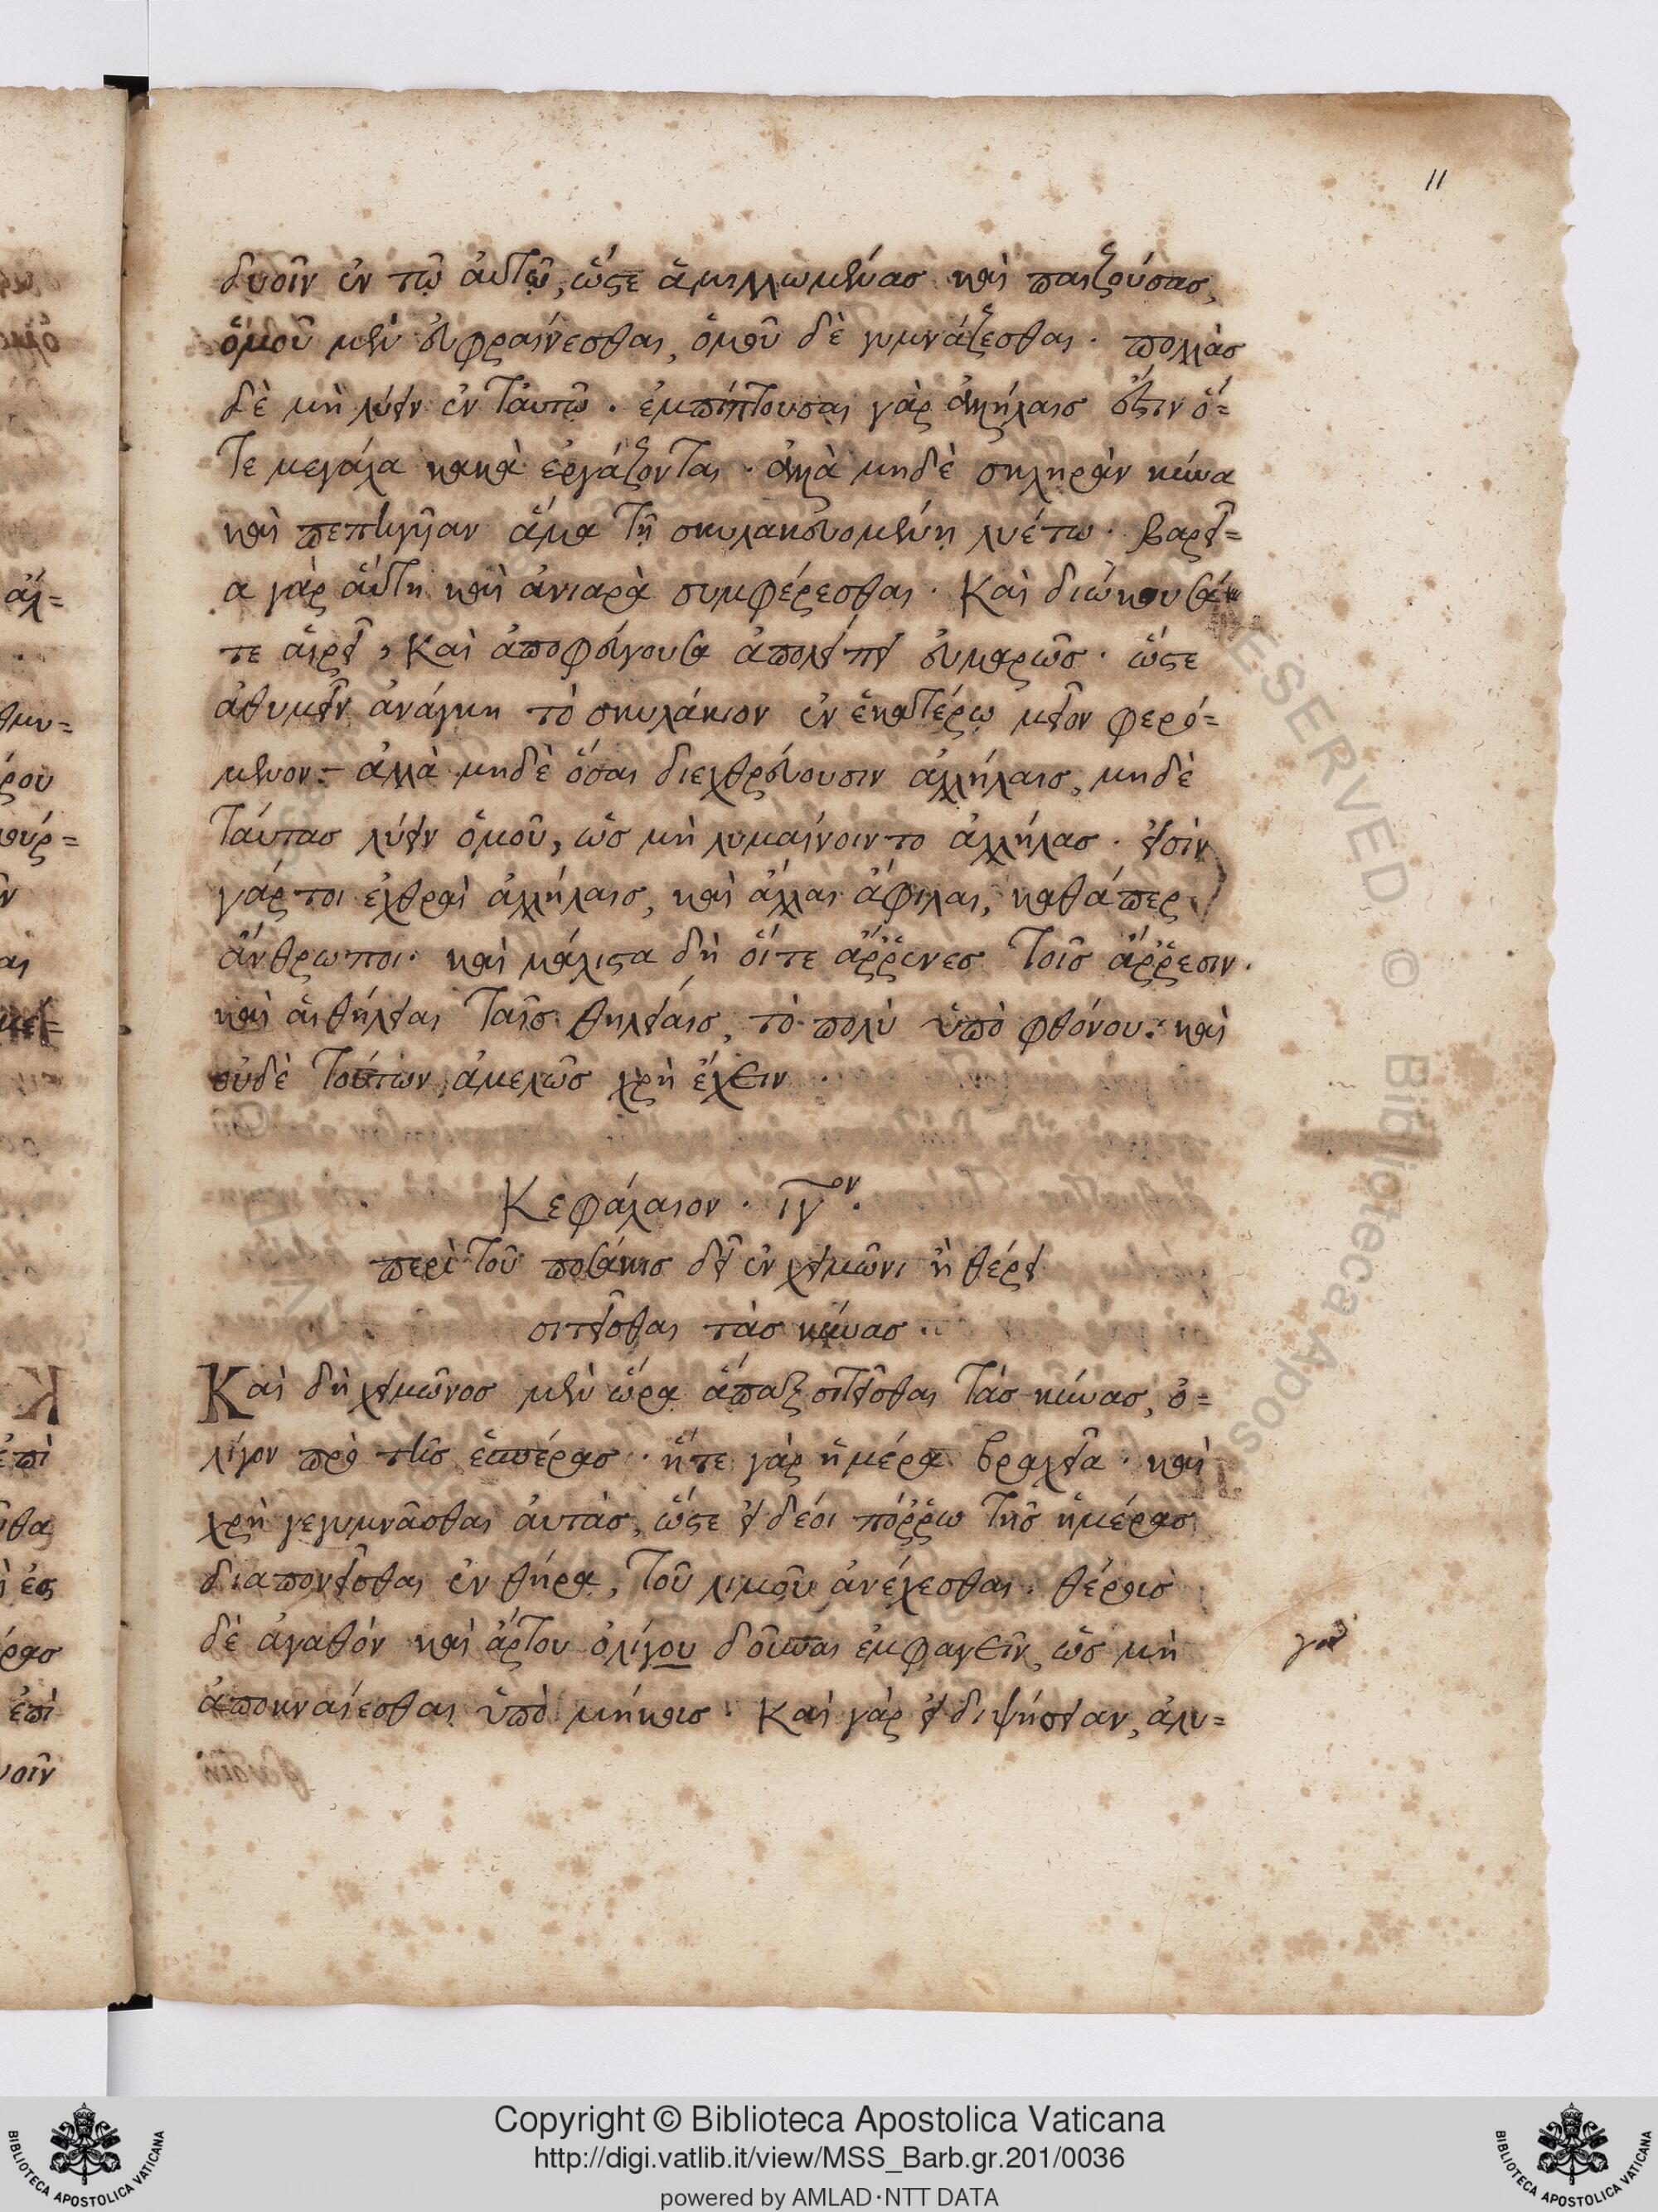 11
δυοῖν ἐν τῷ αὐτῷ, ὥστε ἁμιλλωμένας καὶ παιζούσας,
ὁμοῦ μὲν εὐφραίνεσθαι, ὁμοῦ δὲ γυμνάζεσθαι· πολλὰς
δὲ μὴ λύειν ἐν ταυτῷ· ἐμπίπτουσαι γὰρ ἀλλήλαις ἔστιν ὅ=
τε μεγάλα κακὰ ἐργάζονται· ἀλλὰ μηδὲ σκληρὰν κύνα
καὶ πεπηγῆαν ἅμα τῇ σκυλακευομένῃ λυέτω· βαρεῖ=
α γὰρ αὕτη καὶ ἀνιαρὰ συμφέρεσθαι· Καὶ διώκουσά
τε αἱρεῖ, Καὶ ἀποφεύγουσα ἀπολείπει εὐμαρῶς· ὥστε
ἀθυμεῖν ἀνάγκη τὸ σκυλάκιον ἐν ἑκατέρῳ μεῖον φερό=
μενον· ἀλλὰ μηδὲ ὅσαι διεχθρεύουσιν ἀλλήλαις, μηδὲ
ταύτας λύειν ὁμοῦ, ὡς μὴ λυμαίνοιντο ἀλλήλας· εἰσὶν
γάρ τοι ἐχθραὶ ἀλλήλαις, καὶ ἄλλαι ἄφιλαι, καθάπερ
ἄνθρωποι· καὶ μάλιστα δὴ οἵτε ἄῤῥενες τοῖς ἄῤῥεσιν·
καὶ αἱ θήλειαι ταῖς θηλείαις, τὸ πολὺ ὑπὸ φθόνου· καὶ
οὐδὲ τούτων ἀμελῶς χρὴ ἔχειν·
Κεφάλαιον· ιγον·
περὶ τοῦ ποσάκις δεῖ ἐν χειμῶνι ἢ θέρει
σιτεῖσθαι τὰς κύνας·
Καὶ δὴ χειμῶνος μὲν ὥρα ἅπαξ σιτεῖσθαι τὰς κύνας, ὀ=
λίγον πρὸ τῆς ἑσπέρας· ἥτε γὰρ ἡμέρα βραχεῖα· καὶ
χρὴ γεγυμνᾶσθαι αὐτὰς, ὥστε εἰ δέοι πόῤῥω τῆς ἡμέρας
διαπονεῖσθαι ἐν θήρα, τοῦ λιμοῦ ἀνέχεσθαι· θέρους
δὲ ἀγαθόν καὶ ἄρτου ὀλίγου δοῦναι ἐμφαγεῖν, ὡς μὴ
ἀποκναίεσθαι ὑπὸ μήκους· Καὶ γὰρ εἰ διψήσειαν, ἀλυ=
Copyright © Biblioteca Apostolica Vaticana
http://digi.vatlib.it/view/MSS_Barb.gr.201/0036
powered by AMLAD·NTT DATA
BIBLIOTECA APOSTOLICA VATICANA
BIBLIOTECA APOSTOLICA VATICANA